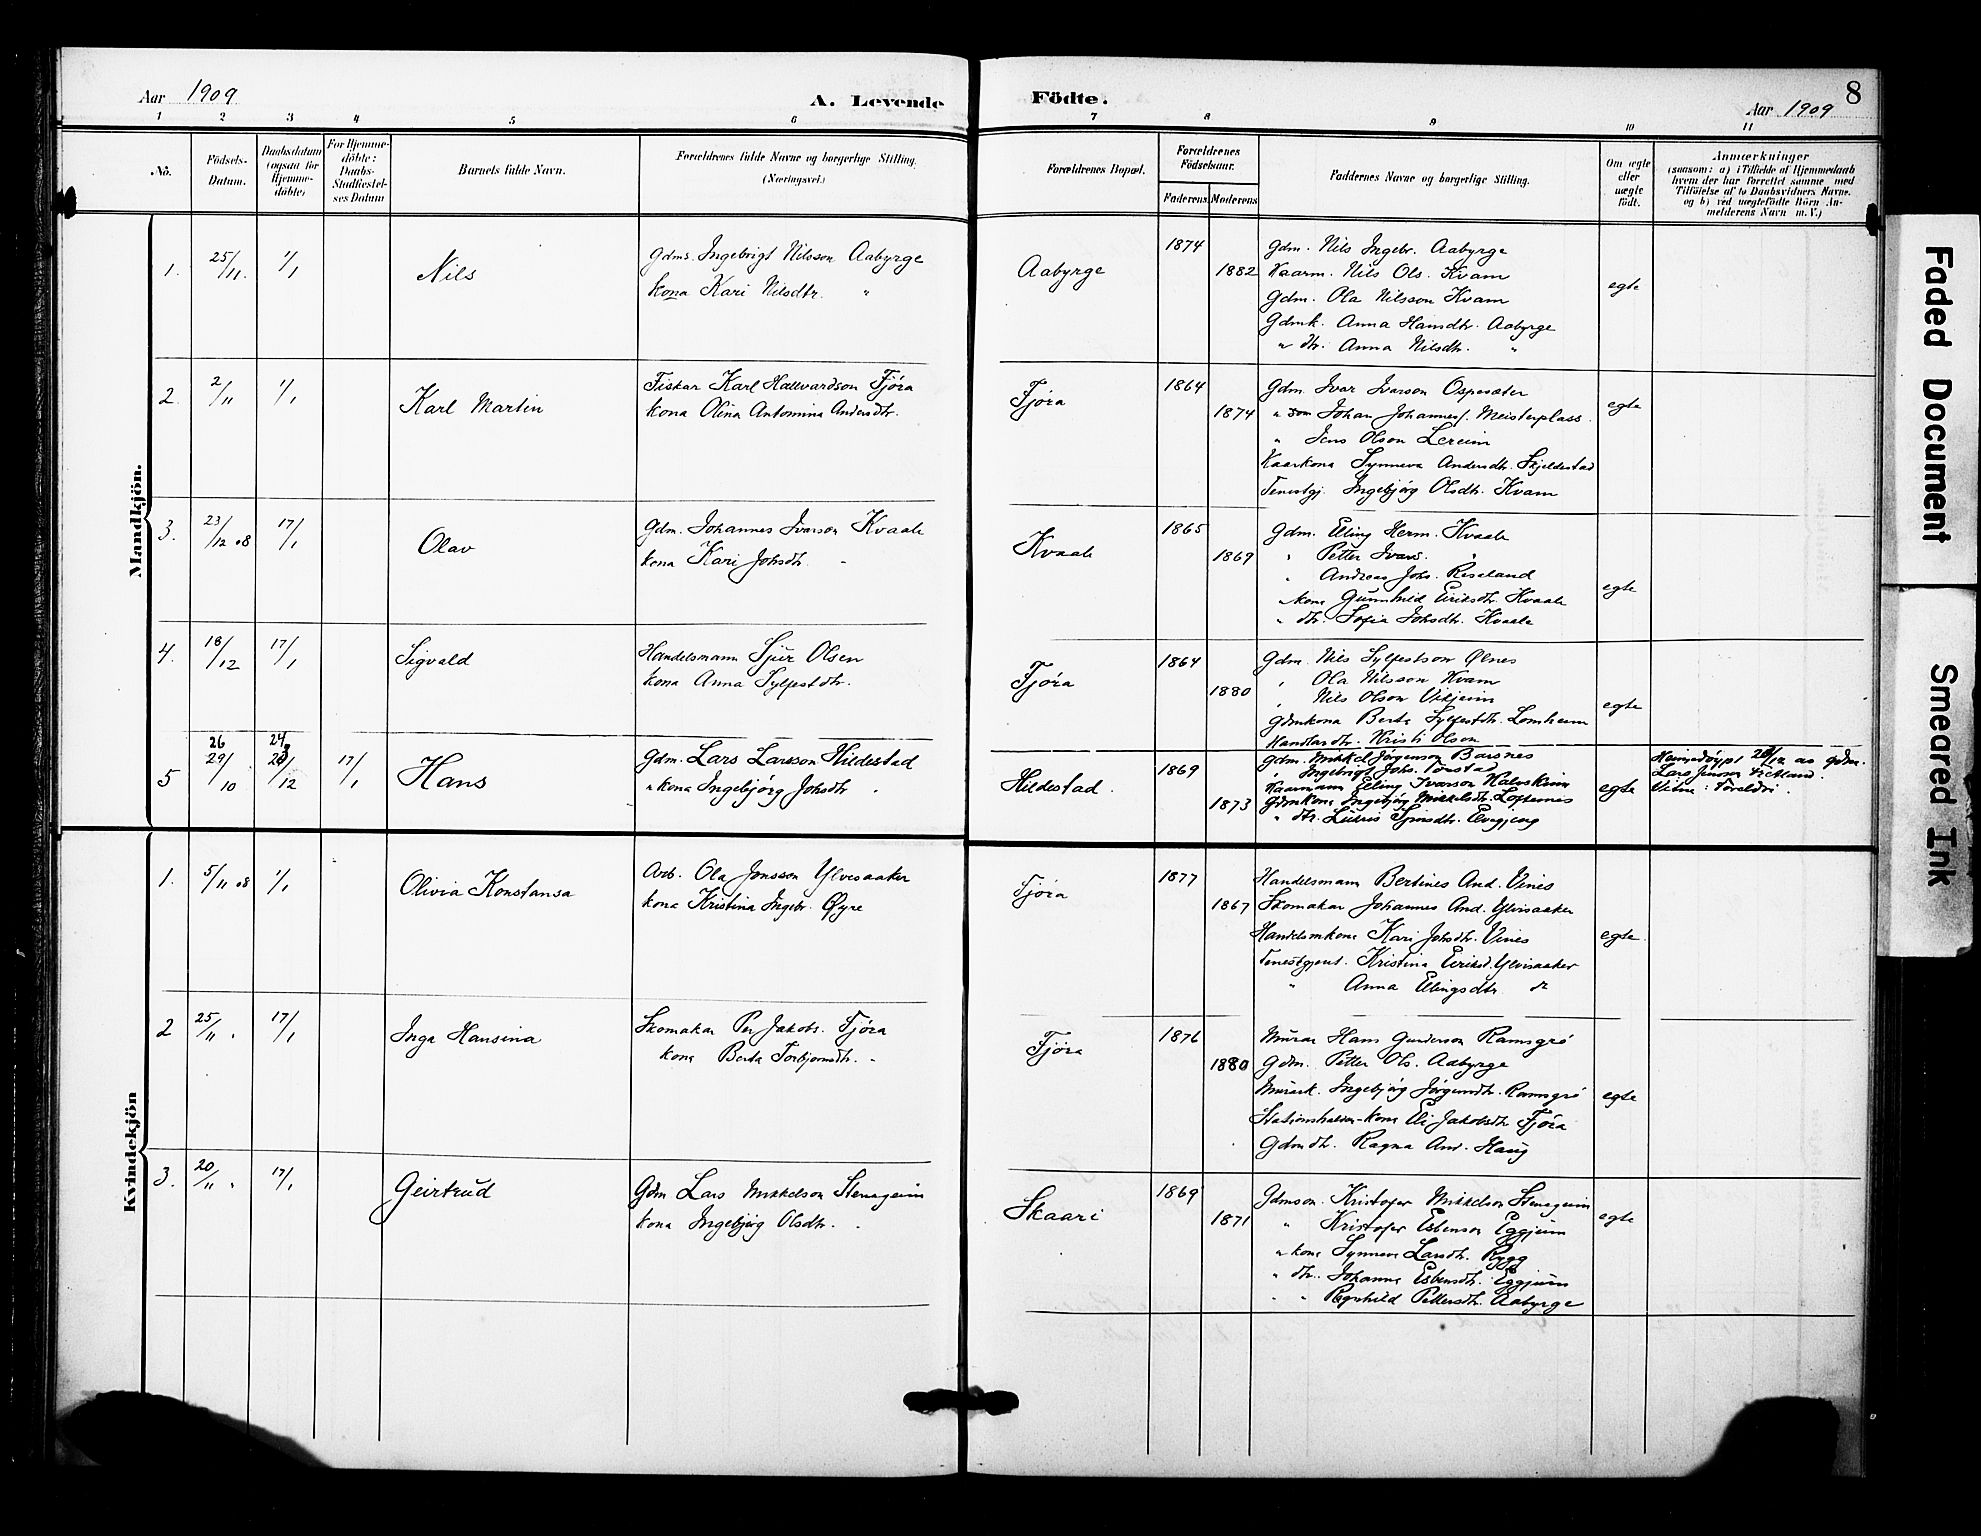 8
Aar 1909
A. Levende
Födte.
Aar 1909
1 2 3 4 5 6 7 8 9 10 11
Nö.
Födsels-
Datum.
Daabsdatum
(ogsaa for
Hjemme-
döbte)
For Hjemme-
döbte:
Daabs-
Stadfæstel-
ses Datum
Barnets fulde Navn.
Forældrenes fulde Navne og borgerlige Stilling.
(Næringsvei.)
Forældrenes Bopæl.
Forældrenes
Födselsaar.
Faderens
Moderens
Faddernes Navne og borgerlige Stilling.
Om ægte
eller
uægte
födt.
Anmærkninger
(saasom: a) i Tilfælde af Hjemmedaab
hvem der har forrettet samme med
Tilföielse af to Daabsvidners Navne.
og b) ved uægtefödte Börn An-
melderens Navn m. V.)
Mandkjön.
1. 25/11. 1/1 Nils
Gdms. Ingebrigt Nilsson Aabyrge
kona Kari Nilsdtr. "
Aabyrge 1874 1882
Gdm. Nils Ingebr. Aabyrge
Kaarm. Nils Ols. Kvam
Gdm. Ola Nilsson Kvam
Gdmk. Anna Hansdtr. Aabyrge
" dtr. Anna Nilsdtr. "
egte
2. 2/11 1/1 Karl Martin
Fiskar Karl Hallvardson Fjøra
kona Olina Antomina Andersdtr.
Fjøra 1864 1874
Gdm. Ivar Ivarson Ospesæter
" son Johan Johannes. Meisterplass.
" Jens Olson Lereim
Kaarkona Synneva Andersdtr. Skjeldestad
Tenestgj. Ingebjørg Olsdtr. Kvam
egte
3. 23/12 08 17/1 Olav
Gdm. Johannes Ivarson Kvaale
kona Kari Johsdtr. "
Kvaale 1865 1869
Gdm. Elling Herm. Kvaale
" Petter Ivars. "
" Andreas Johs. Riseland
" kona Gunnhild Eriksdtr. Kvaale
" dtr. Sofia Johsdtr. Kvaale
egte
4. 18/12 17/1 Sigvald
Handelsmann Sjur Olsen
kona Anna Sylfestdtr.
Fjøra 1864 1880
Gdm. Nils Sylfestson Ølnes
" Ola Nilsson Kvam
" Nils Olson Vikjeim
Gdmkona Berta Sylfestdtr. Lomheim
Handlardtr. Kristi Olson
egte
5 26 29/10 24 /12 17/1 Hans
Gdm. Lars Larsson Hildestad
" kona Ingebjørg Johsdtr "
Hildestad. 1869 1873
Gdm. Mikkel Jørgenson Barsnes
" Ingebrigt Johs.
Kaarmann Elling Ivarson
Gdmkona Ingebjørg Mikkelsdtr. Loftesnes
" dtr.
egte
Heimedøypt /12 av gdm.
Lars Jenson
Vitne: Foreldri.
Kvindekjön
1. 5/11 08 1/1 Olivia Konstansa
Arb. Ola Jonsson Ylvesaaker
kona Kristina Ingebr. Øyre
Fjøra 1877 1867
Handelsmann Bertines And. Vines
Skomakar Johannes And. Ylvisaaker
Handelsmkona Kari Johsdtr. Vines
Tenestgjent. Kristina Eriksd. Ylvisaaker
" Anna Ellingsdtr do
egte.
2 25/11 " 17/1 Inga Hansina
Skomakar Per Jakobs. Fjøra
kona Berta Torbjornsdtr. "
Fjøra 1876 1880
Murar Hans Gunderson Ramsgrø
Gdm. Petter Ols. Aabyrge
Murark. Ingebjørg Jørgensdtr. Ramsgrø
Stationsholder-kona Eli Jakobsdtr Fjøra
Gdmdtr. Ragna And. Haug
egte
3. 20/11 " 17/1 Geirtrud
Gdm Lars Mikkelson Stenegeim
kona Ingebjørg Olsdtr. "
Skaari 1869 1871
Gdmson. Kristofer Mikkelson Stenegeim
" Kristofer Esbenson Eggjum
" kona Synneva Larsdtr. Rygg
" dtr. Johanna Esbensdtr. Eggjum
" " Ragnhild Pettersdtr. Aabyrge
egte
Faded Document
Smeared Ink